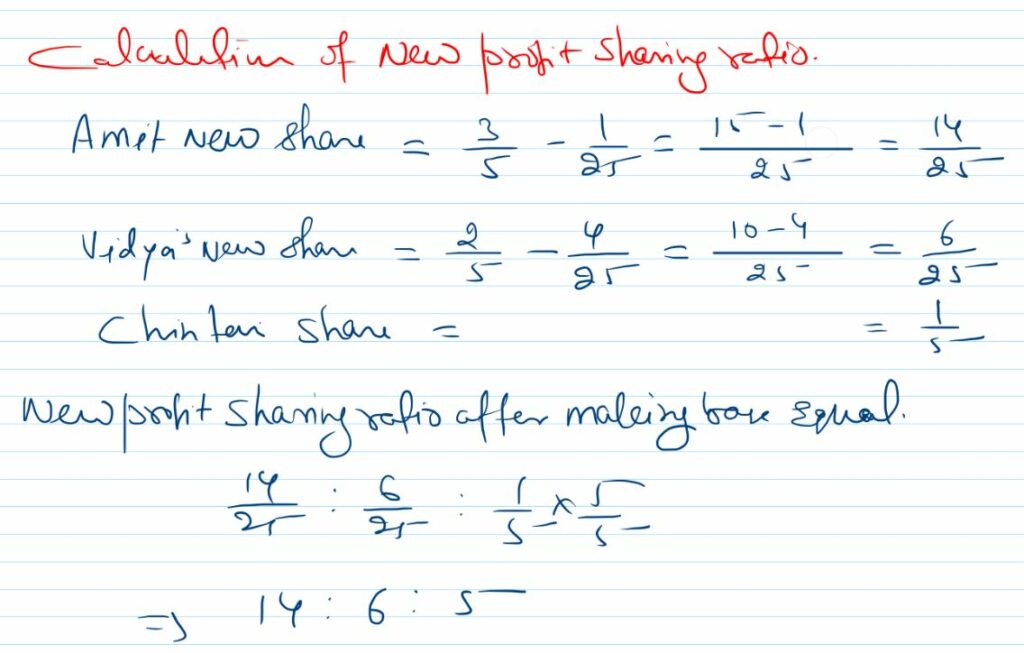 Calculation of New profit sharing ratio.
Amit New share = 3/5 - 1/25 = 15-1/25 = 14/25
Vidya's New share = 2/5 - 4/25 = 10-4/25 = 6/25
Chintan share = = 1/5
New profit sharing ratio after making base equal.
14/25 : 6/25 : 1/5 × 5/5
=> 14 : 6 : 5